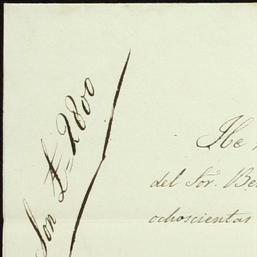 Son £ 2800
He
del Sor. Be
ochoscientas